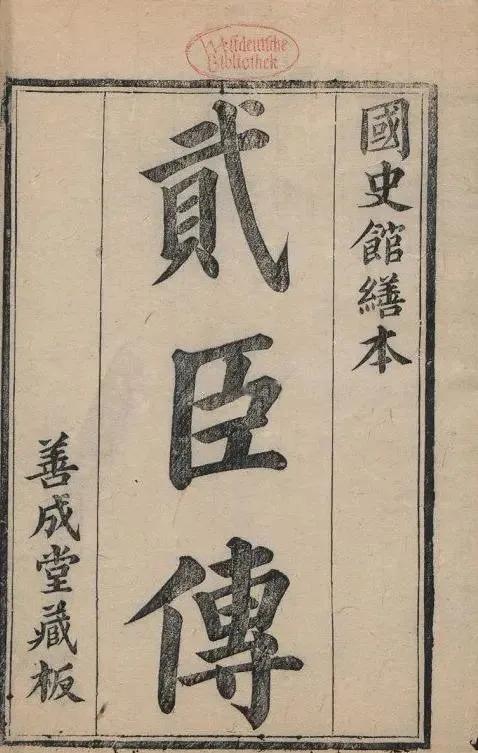 Westdeutsche
Bibliothek
國史館繕本
貳臣傳
善成堂藏板